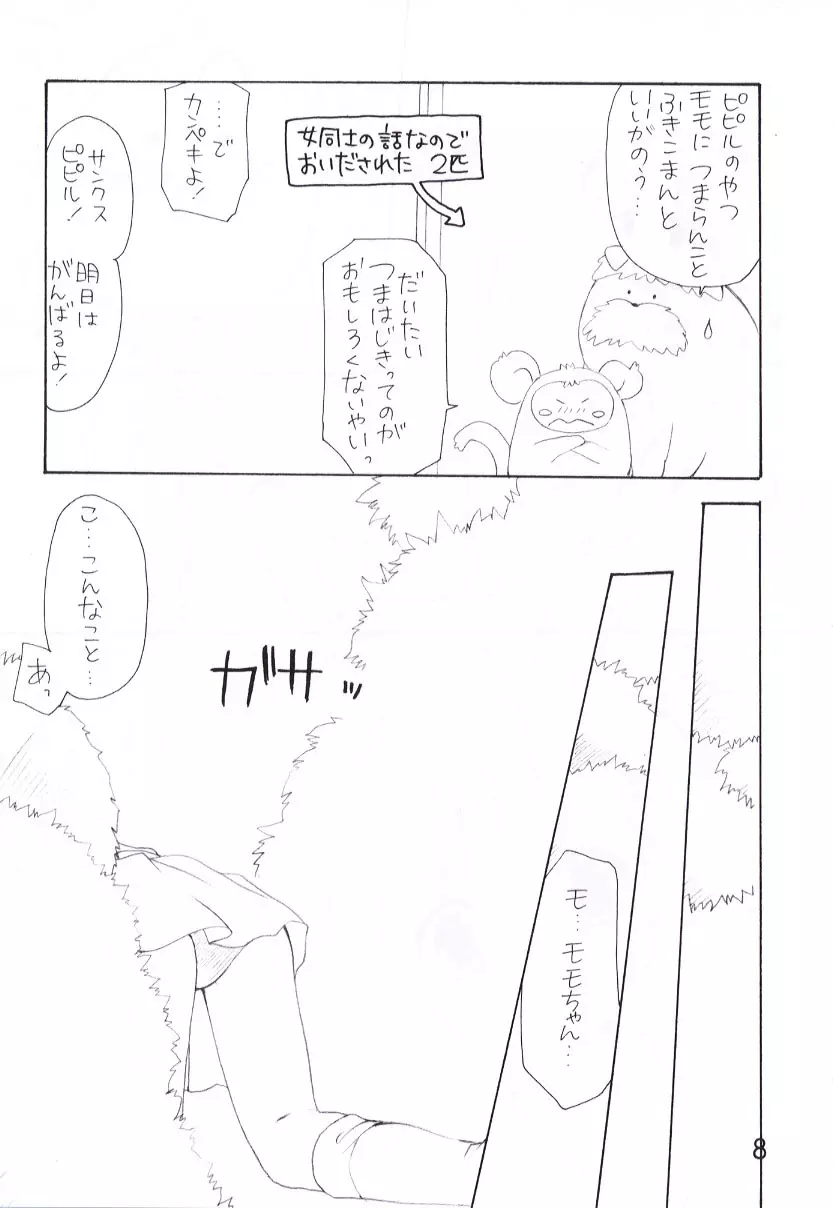 ピピルのやつ
モモに つまらんこと
ふきこまんと
いいがのう…
女同士の話なので
おいだされた 2匹
だいたい
つまはじきってのが
おもしろくないやいっ
……で
カンペキよ!
サンクス
ピピル!
明日は
がんばるよ!
モ…モモちゃん…
ガサッ
こ…こんなこと…
あっ
8